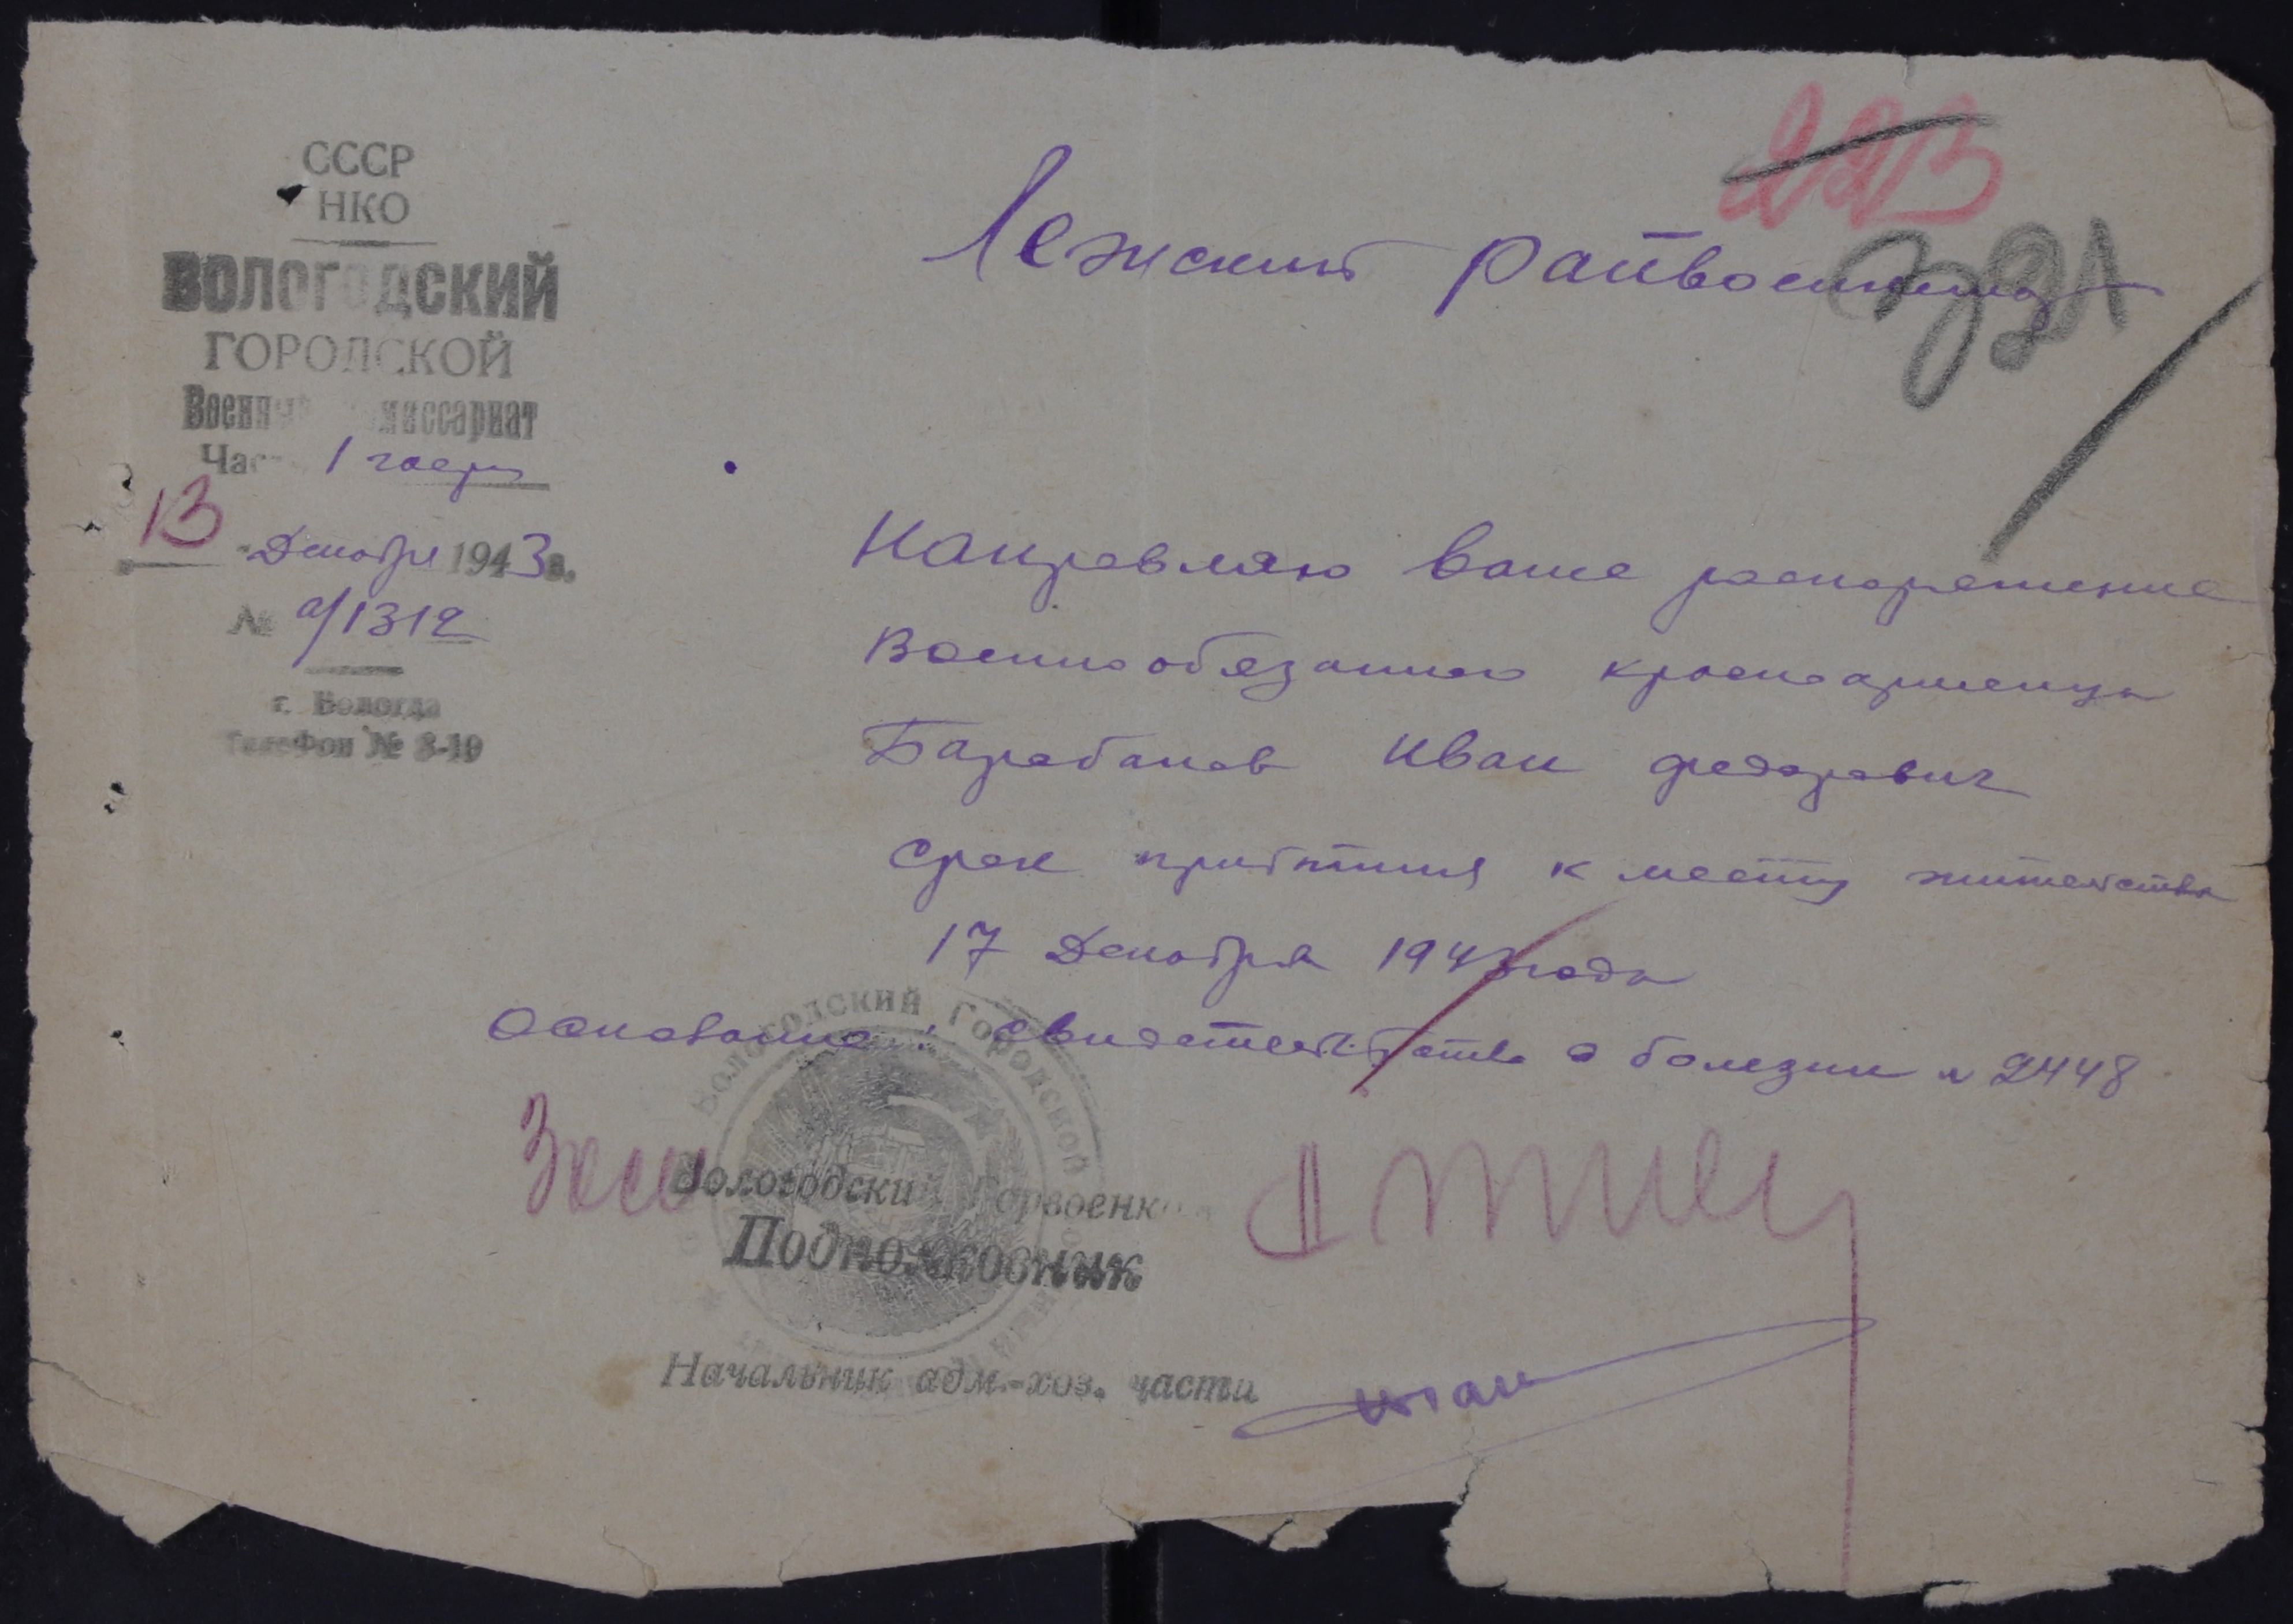 СССР
НКО
ВОЛОГОДСКИЙ
ГОРОДСКОЙ
Военный комиссариат
Часть 1 часть
13 Декабря 1943 г.
№ а/1312
г. Вологда
Телефон № 3-19
223
Лежский райвоенкому
321
Направляю ваше распоряжение
Военнообязанного красноармейца
Барабанов Иван Федорович
Срок прибытия к месту жительства
17 Декабря 1943 года
Основание: свидетельство о болезни № 2448
Вологодский Городской
Вологодский Горвоенком
Подполковник
Начальник адм.-хоз. части